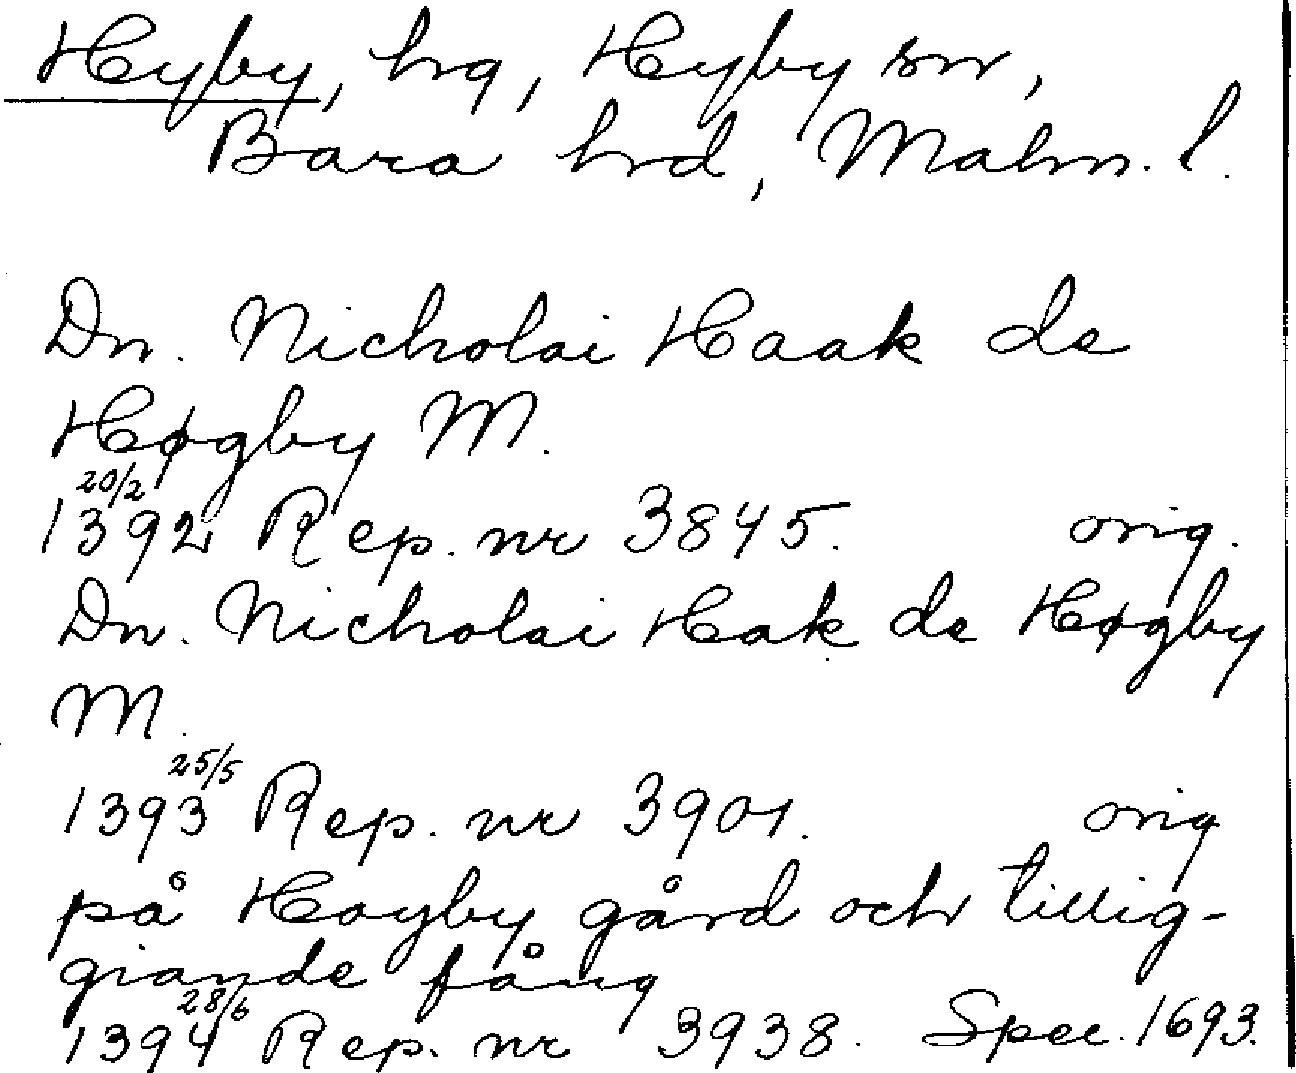 Hyby, hg, Hyby sn,
Bara hrd, Malm. l.
Dn. Nicholai Haak de
Høgby M.
20/2
1392 Rep. nr 3845. orig.
Dn. Nicholai Hak de Høgby
M.
25/5
1393 Rep. nr 3901. orig
på Hoyby gård och tillig-
giande fång
28/6
1394 Rep. nr 3938. Spec. 1693.